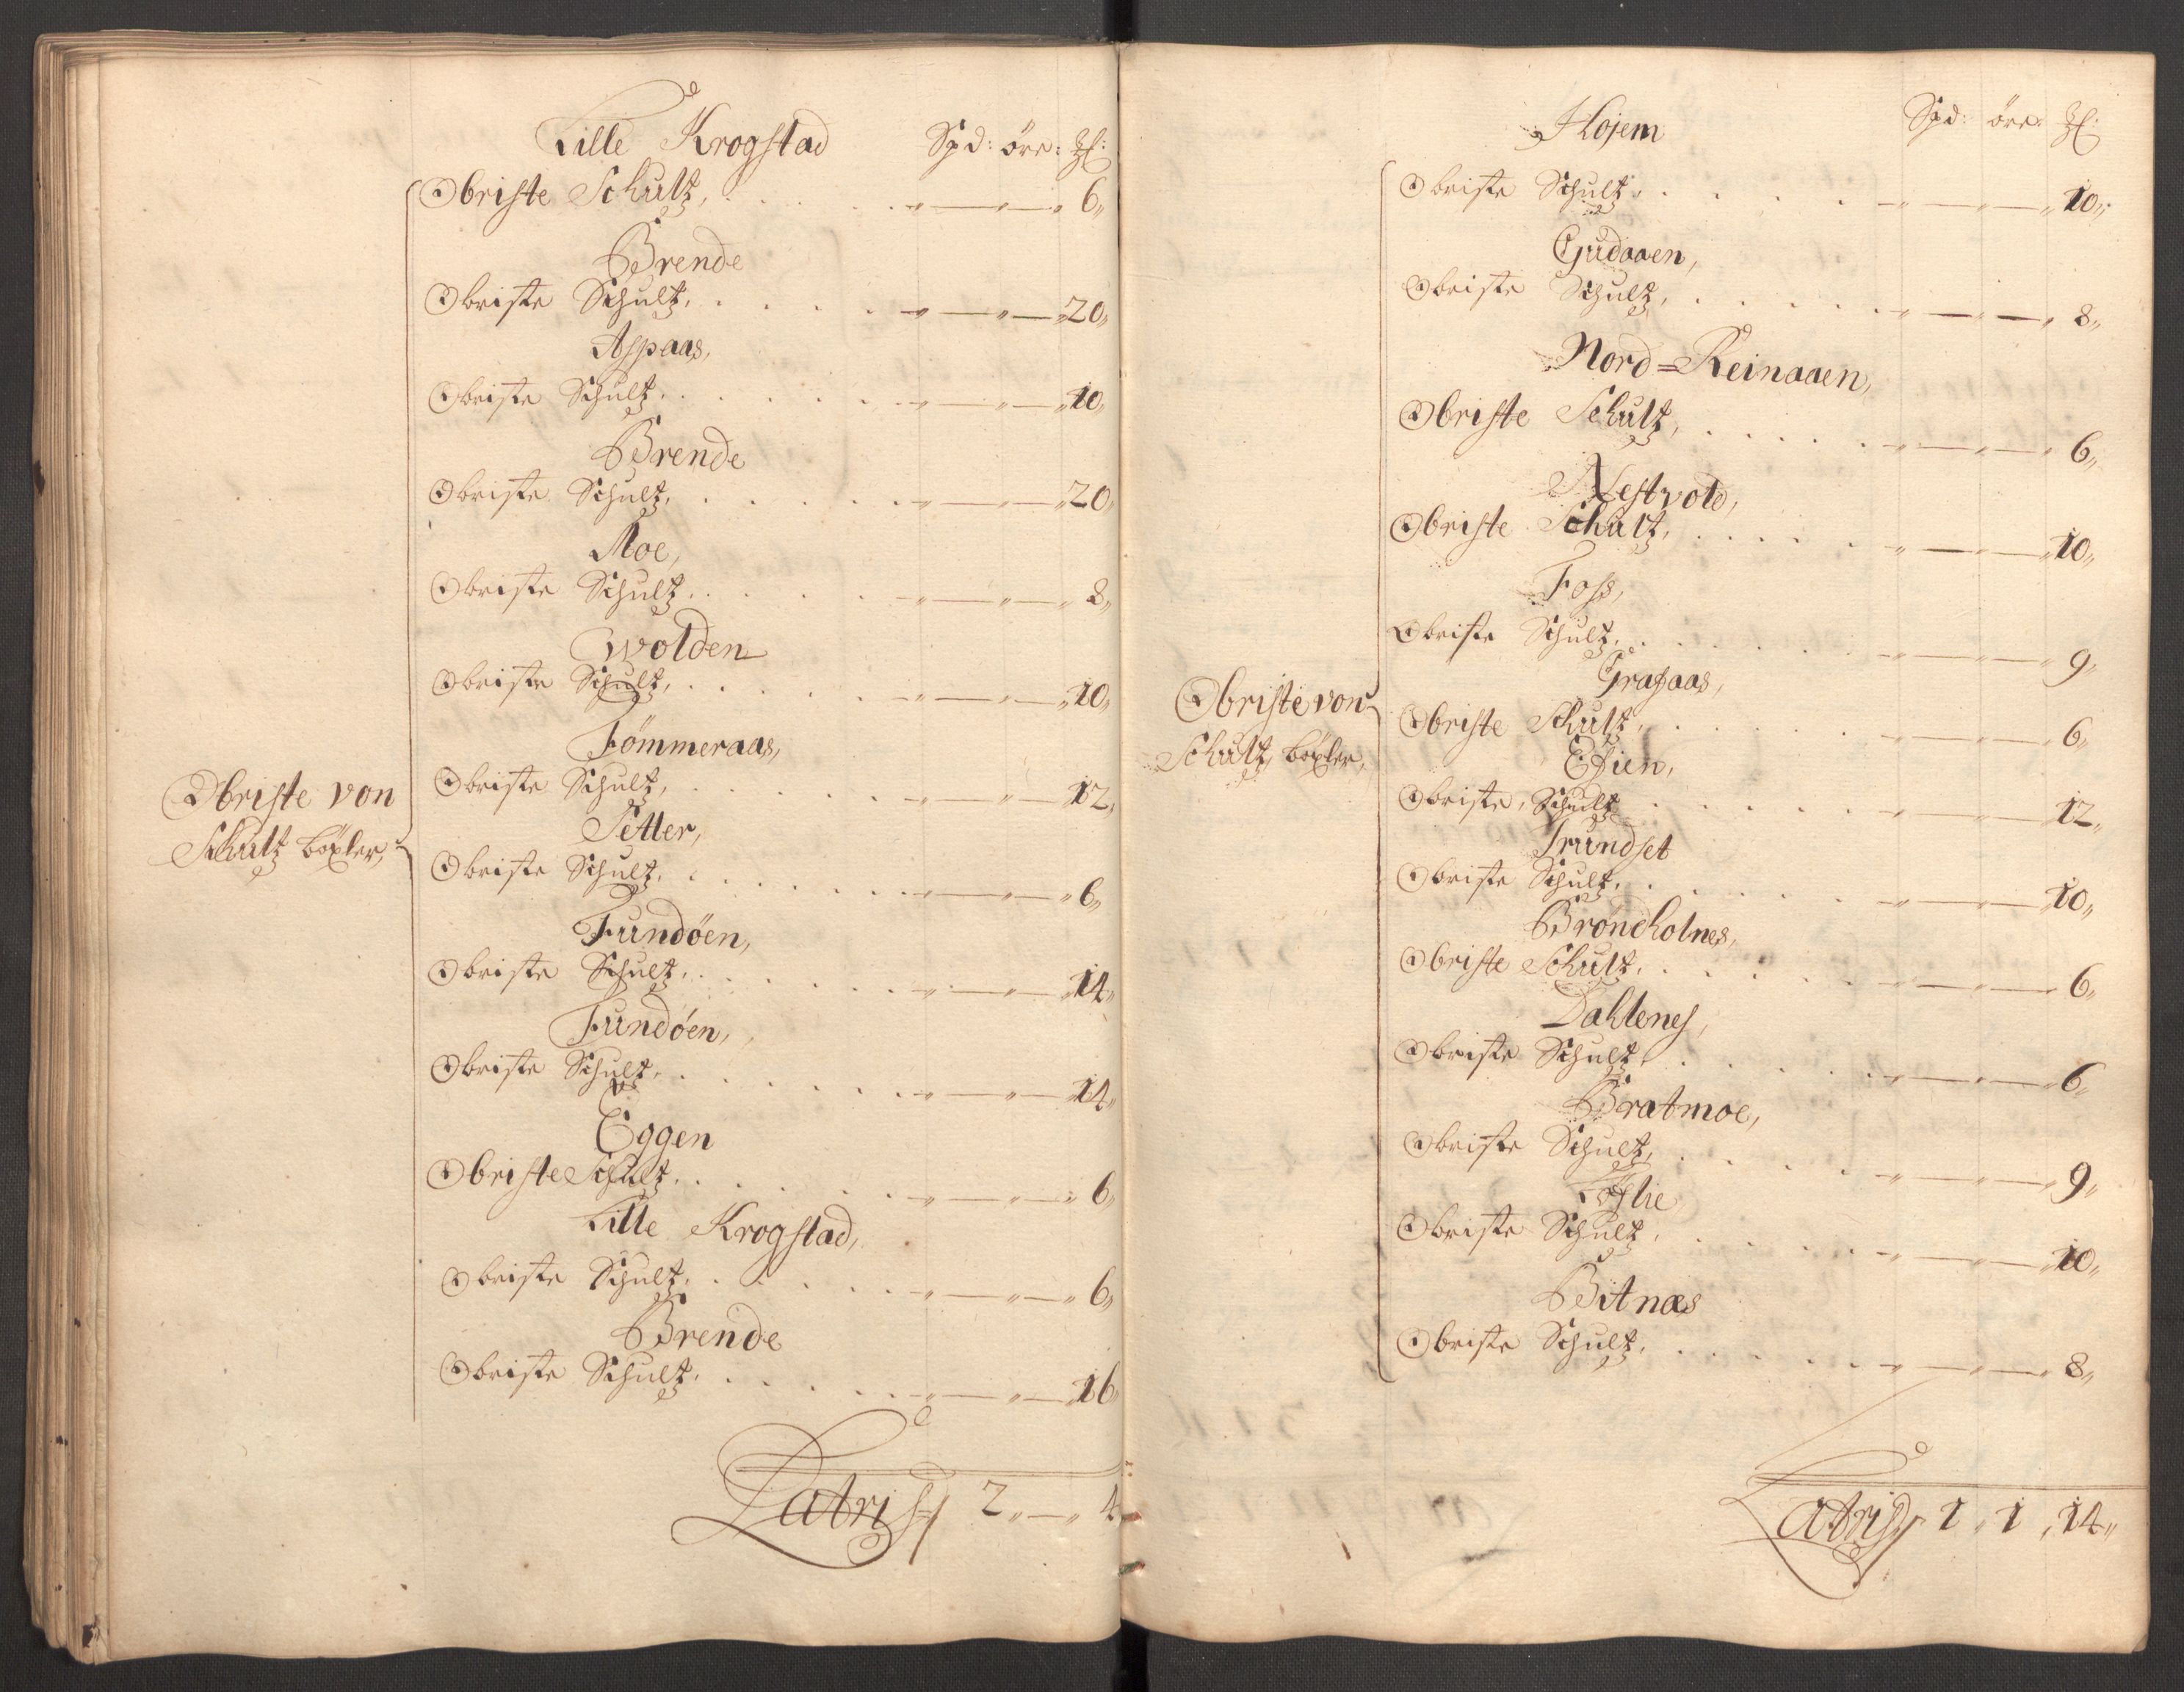 Lille Krogstad Spd: öre: Ɥ:
Obriste Schultz, . . . . . „ — „ — „ 6„
Brende
Obriste Schultz, . . . . . „ — „ — „ 20„
Aspaas,
Obriste Schultz, . . . . . „ — „ — „ 10„
Brende
Obriste Schultz, . . . . . „ — „ — „ 20„
Moe,
Obriste Schultz, . . . . . „ — „ — „ 8„
Wolden
Obriste Schultz, . . . . . „ — „ — „ 10„
Tömmeraas,
Obriste Schultz, . . . . . „ — „ — „ 12„
Obriste von
Setter,
Schultz böxler,
Obriste Schultz, . . . . . „ — „ — „ 6„
Fundöen,
Obriste Schultz, . . . . . „ — „ — „ 14„
Fundöen,
Obriste Schultz, . . . . . „ — „ — „ 14„
Eggen
Obriste Schultz, . . . . . „ — „ — „ 6„
Lille Krogstad,
Obriste Schultz, . . . . . „ — „ — „ 6„
Brende
Obriste Schultz, . . . . . „ — „ — „ 16„
Latris 2 „ — „ 4
Hojem Spd: öre:
Obriste Schultz, . . . . . „ — „ — „ 10„
Gudaaen,
Obriste Schultz, . . . . . „ — „ — „ 8„
Nord=Reinaaen,
Obriste Schultz, . . . . . „ — „ — „ 6„
Nestvold,
Obriste Schultz, . . . . . „ — „ — „ 10„
Foss,
Obriste Schultz, . . . . . „ — „ — „ 9„
Obriste von
Schultz böxler,
Obriste Schultz, . . . . . „ — „ — „ 6„
Obriste Schultz . . . . . „ — „ — „ 12„
Trundset
Obriste Schultz, . . . . . „ — „ — „ 10„
Bröndholnes,
Obriste Schultz, . . . . . „ — „ — „ 6„
Dahlenes,
Obriste Schultz, . . . . . „ — „ — „ 6„
Bratmoe,
Obriste Schultz, . . . . . „ — „ — „ 9„
Obriste Schultz, . . . . . „ — „ — „ 10„
Bitnæs
Obriste Schultz, . . . . . „ — „ — „ 8„
Latris 1 „ 1 „ 14„